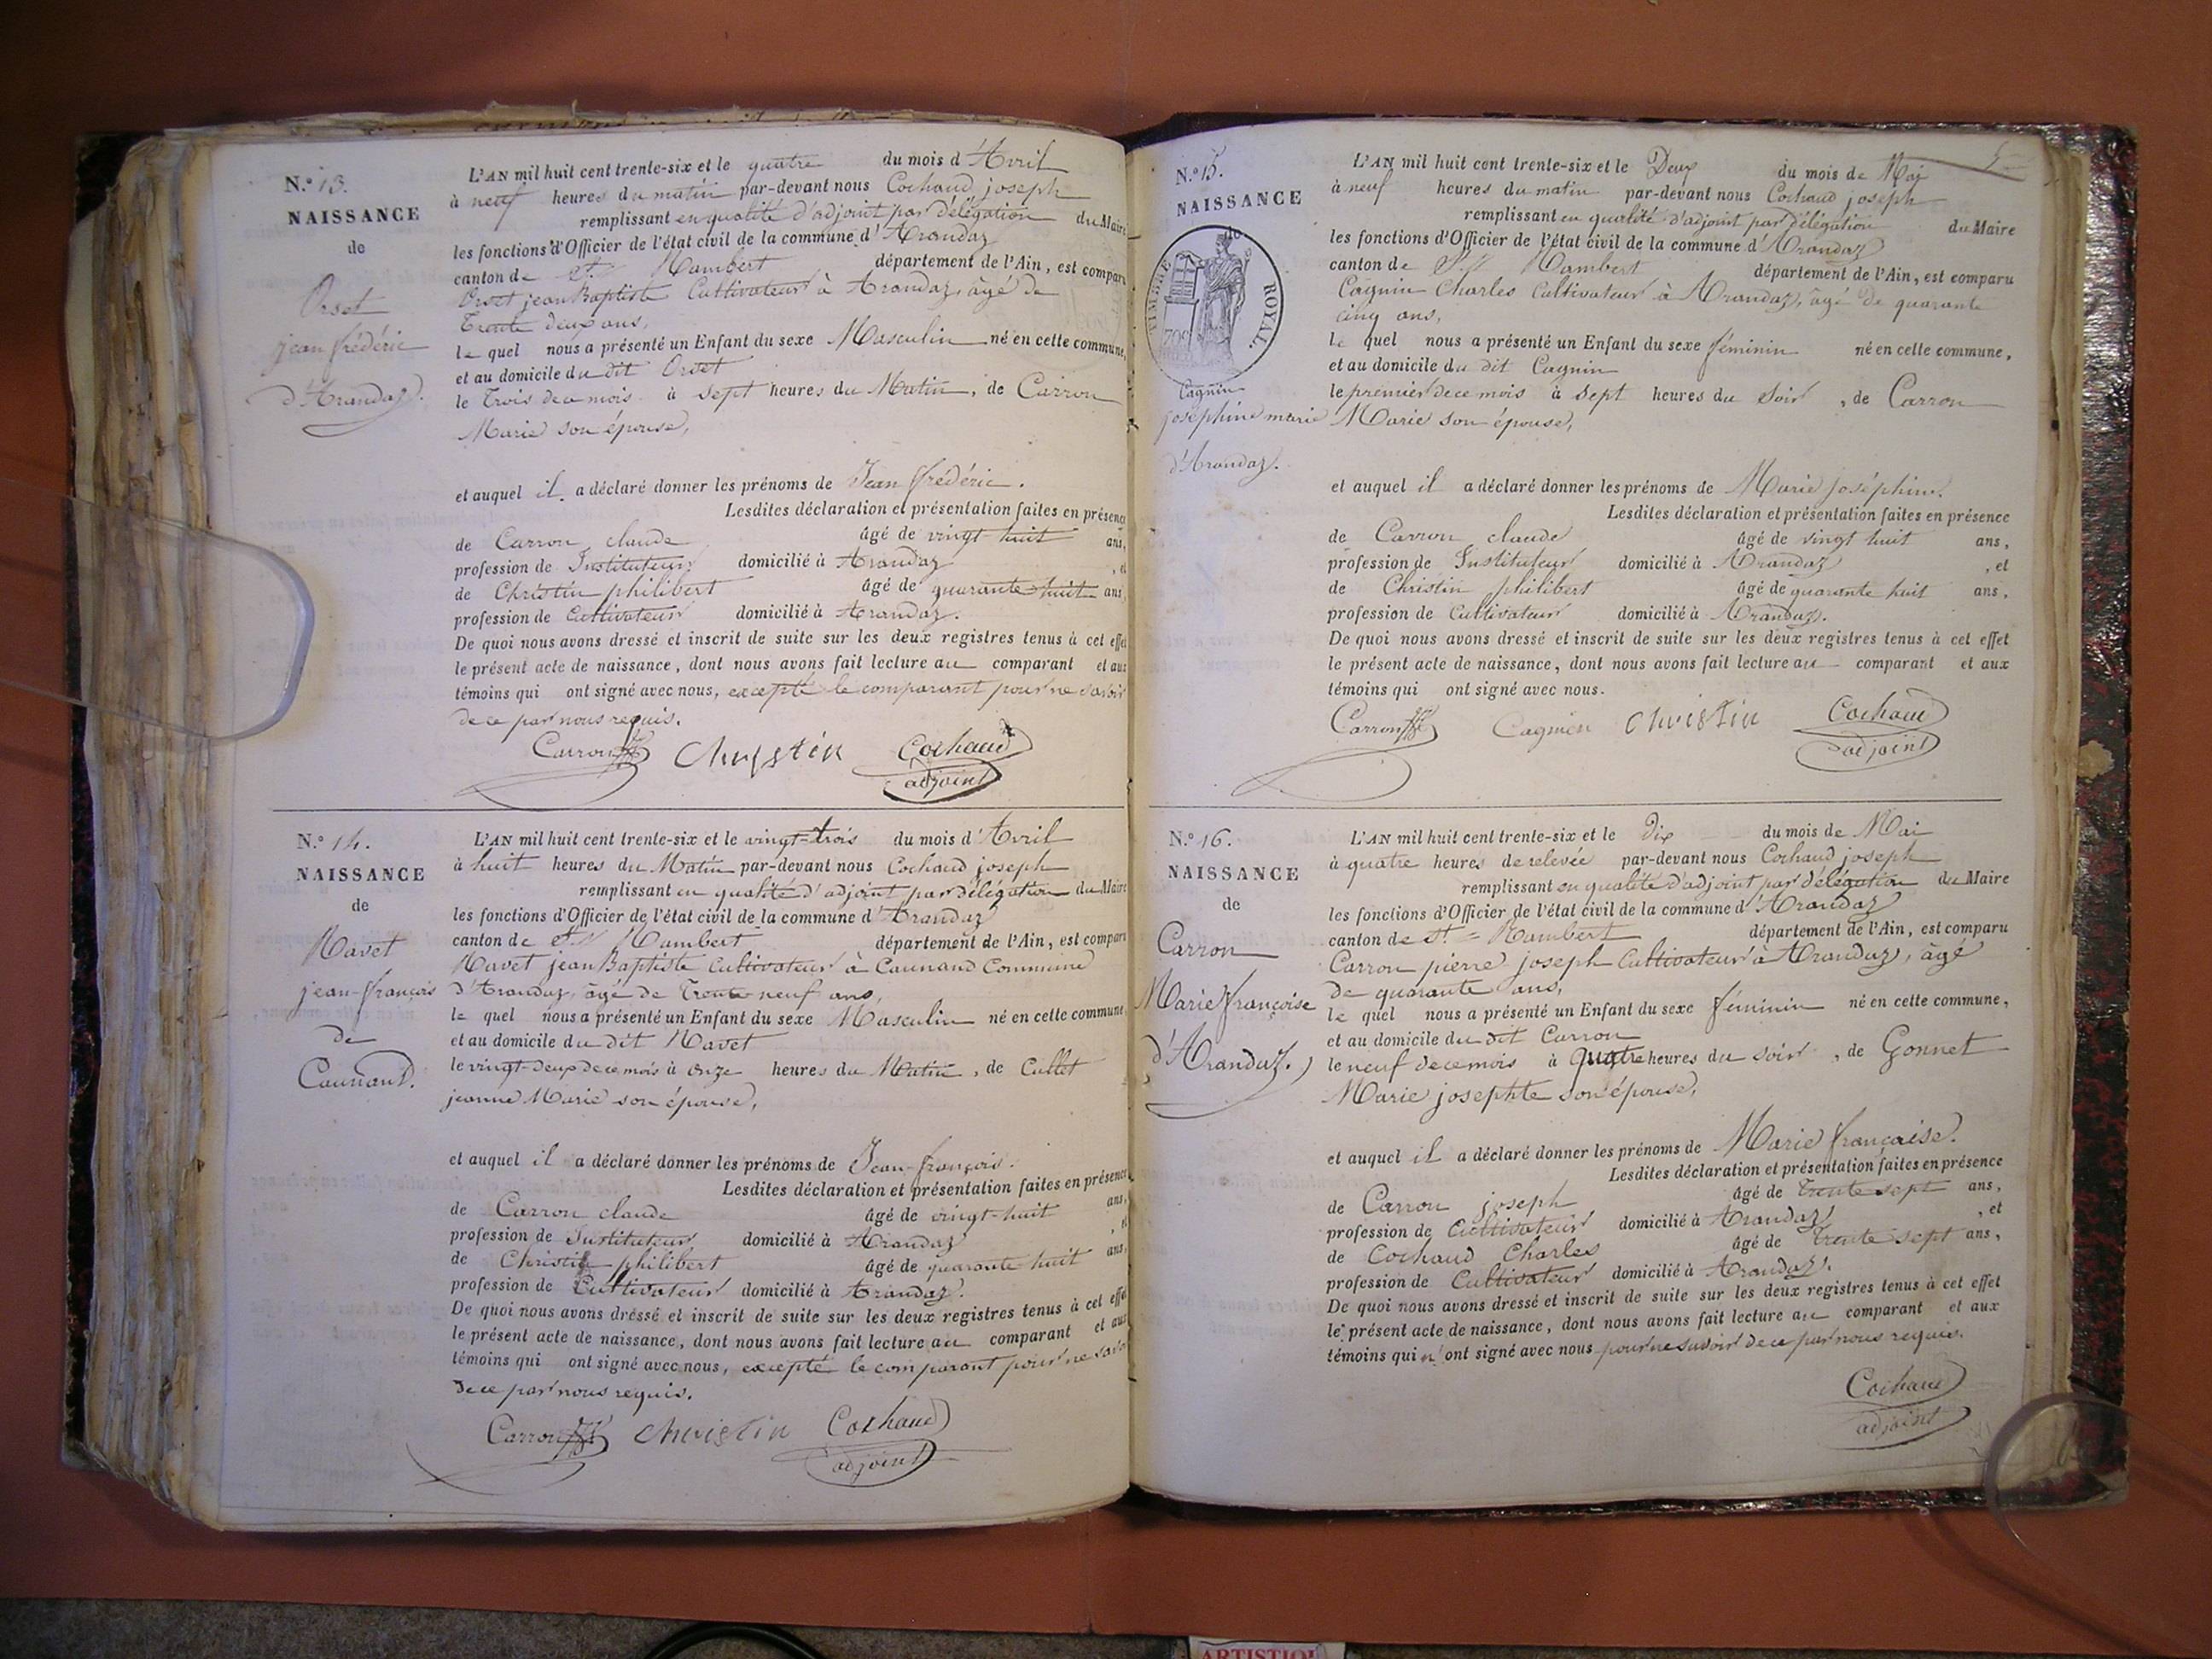 N.º 13.
NAISSANCE
de
Orset
jean frédéric
d'Arandaz.
L'AN mil huit cent trente-six et le quatre du mois d'Avril
à neuf heures du matin par-devant nous Cochaud joseph
remplissant en qualité d'adjoint par délégation du Maire
les fonctions d'Officier de l'état civil de la commune d'Arandaz
canton de St. Rambert département de l'Ain, est comparu
Orset jean Baptiste Cultivateur à Arandaz, âgé de
Trente deux ans,
le quel nous a présenté un Enfant du sexe Masculin né en cette commune,
et au domicile du dit Orset
le Trois de ce mois à sept heures du Matin, de Carron
Marie son épouse,
et auquel il a déclaré donner les prénoms de Jean frédéric.
Lesdites déclaration et présentation faites en présence
de Carron claude âgé de vingt huit ans,
profession de Instituteur domicilié à Arandaz, et
de Christin philibert âgé de quarante-huit ans,
profession de Cultivateur domicilié à Arandaz.
De quoi nous avons dressé et inscrit de suite sur les deux registres tenus à cet effet
le présent acte de naissance, dont nous avons fait lecture au comparant et aux
témoins qui ont signé avec nous, excepté le comparant pour ne savoir
de ce par nous requis.
Carron Christin Cochaud
adjoint
N.º 14.
NAISSANCE
de
Ravet
jean-françois
de
Caunand.
L'AN mil huit cent trente-six et le vingt-trois du mois d'Avril
à huit heures du Matin par-devant nous Cochaud joseph
remplissant en qualité d'adjoint par délégation du Maire
les fonctions d'Officier de l'état civil de la commune d'Arandaz
canton de St. Rambert département de l'Ain, est comparu
Ravet jean Baptiste Cultivateur à Caunand Commune
d'Arandaz, âgé de Trente-neuf ans,
le quel nous a présenté un Enfant du sexe Masculin né en cette commune,
et au domicile du dit Ravet
le vingt-deux de ce mois à onze heures du Matin, de Cullet
jeanne Marie son épouse,
et auquel il a déclaré donner les prénoms de Jean-françois.
Lesdites déclaration et présentation faites en présence
de Carron claude âgé de vingt-huit ans,
profession de Instituteur domicilié à Arandaz, et
de Christin philibert âgé de quarante huit ans,
profession de Cultivateur domicilié à Arandaz.
De quoi nous avons dressé et inscrit de suite sur les deux registres tenus à cet effet
le présent acte de naissance, dont nous avons fait lecture au comparant et aux
témoins qui ont signé avec nous, excepté le comparant pour ne savoir
de ce par nous requis.
Carron Christin Cochaud
adjoint
5
N.º 15.
NAISSANCE
de
TIMBRE ROYAL.
Cagnin
joséphine marie
d'Arandaz.
L'AN mil huit cent trente-six et le Deux du mois de Mai
à neuf heures du matin par-devant nous Cochaud joseph
remplissant en qualité d'adjoint par délégation du Maire
les fonctions d'Officier de l'état civil de la commune d'Arandaz
canton de St. Rambert département de l'Ain, est comparu
Cagnin Charles Cultivateur à Arandaz, âgé de quarante
cinq ans,
le quel nous a présenté un Enfant du sexe féminin né en cette commune,
et au domicile du dit Cagnin
le premier de ce mois à sept heures du soir, de Carron
Marie son épouse,
et auquel il a déclaré donner les prénoms de Marie joséphine.
Lesdites déclaration et présentation faites en présence
de Carron claude âgé de vingt huit ans,
profession de Instituteur domicilié à Arandaz, et
de Christin philibert âgé de quarante huit ans,
profession de Cultivateur domicilié à Arandaz.
De quoi nous avons dressé et inscrit de suite sur les deux registres tenus à cet effet
le présent acte de naissance, dont nous avons fait lecture au comparant et aux
témoins qui ont signé avec nous.
Carron Cagnien Christin Cochaud
adjoint
N.º 16.
NAISSANCE
de
Carron
Marie françoise
d'Arandaz.
L'AN mil huit cent trente-six et le dix du mois de Mai
à quatre heures de relevée par-devant nous Cochaud joseph
remplissant en qualité d'adjoint par délégation du Maire
les fonctions d'Officier de l'état civil de la commune d'Arandaz
canton de St. Rambert département de l'Ain, est comparu
Carron pierre joseph Cultivateur à Arandaz, âgé
de quarante ans,
le quel nous a présenté un Enfant du sexe féminin né en cette commune,
et au domicile du dit Carron
le neuf de ce mois à quatre heures du soir, de Gonnet
Marie josephte son épouse,
et auquel il a déclaré donner les prénoms de Marie française.
Lesdites déclaration et présentation faites en présence
de Carron joseph âgé de trente sept ans,
profession de Cultivateur domicilié à Arandaz, et
de Cochaud Charles âgé de trente sept ans,
profession de Cultivateur domicilié à Arandaz.
De quoi nous avons dressé et inscrit de suite sur les deux registres tenus à cet effet
le présent acte de naissance, dont nous avons fait lecture au comparant et aux
témoins qui n'ont signé avec nous pour ne savoir de ce par nous requis.
Cochaud
adjoint